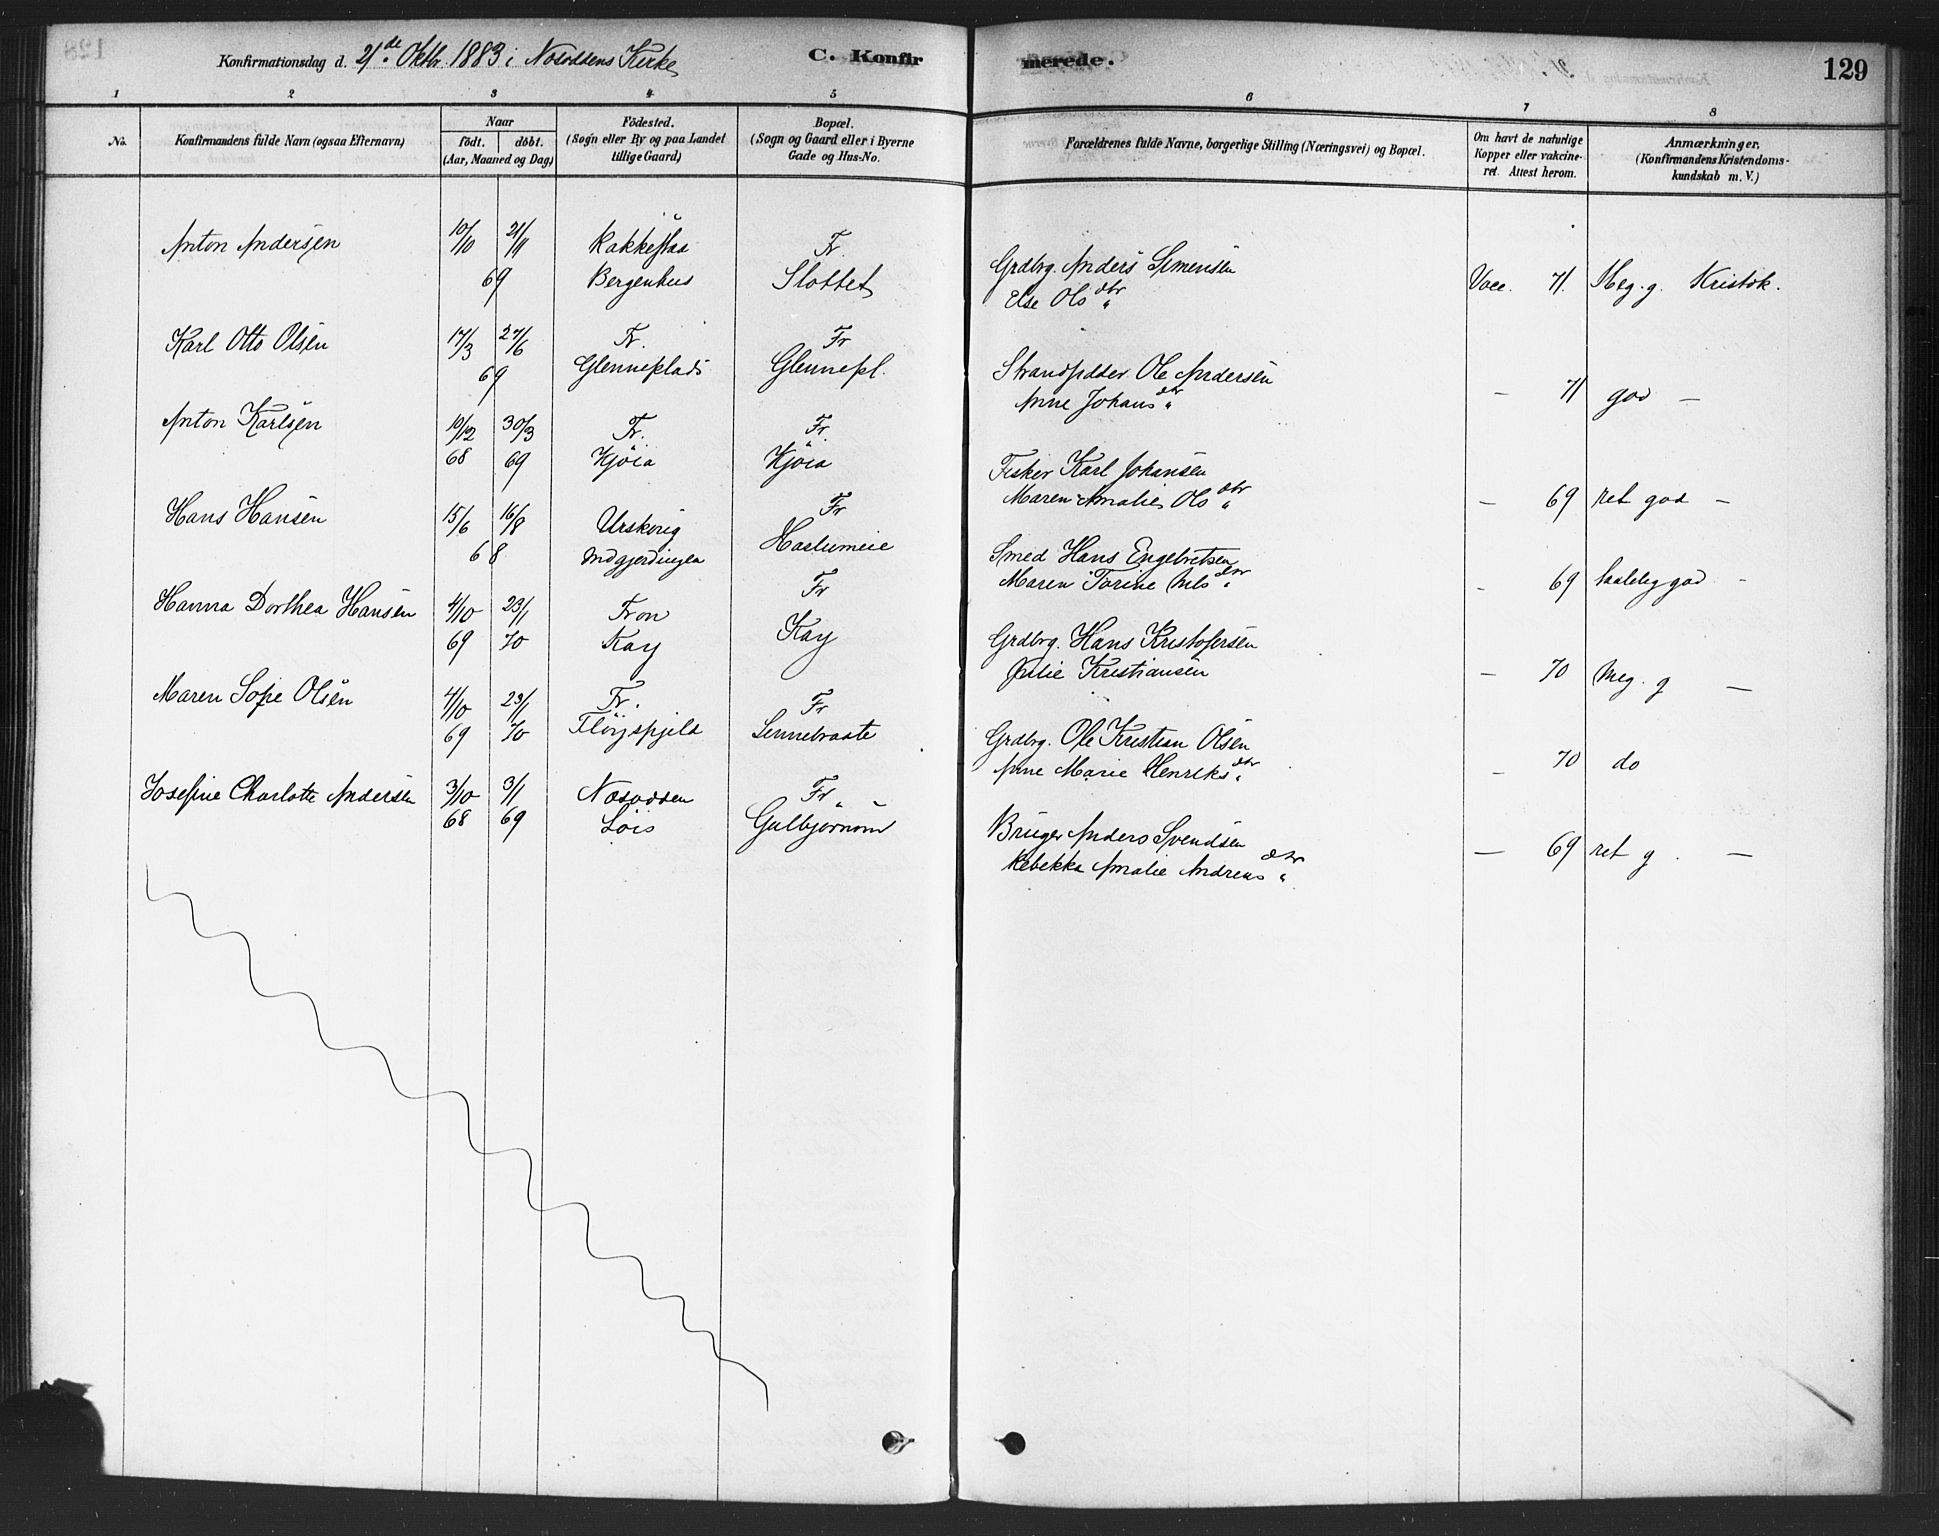 Konfirmationsdag d. 21de Oktbr 1883 i Nesoddens Kirke
C. Konfirmerede.
129
1 2 3 4 5 6 7 8
No.
Konfirmandens fulde Navn (ogsaa Efternavn)
Naar
födt. döbt.
(Aar, Maaned og Dag)
Födested.
(Sogn eller By og paa Landet
tillige Gaard)
Bopæl.
(Sogn og Gaard eller i Byerne
Gade og Hus-No.
Forældrenes fulde Navne, borgerlige Stilling (Næringsvei) og Bopæl.
Om havt de naturlige
Kopper eller vakcine-
ret. Attest herom.
Anmærkninger.
(Konfirmandens Kristendoms-
kundskab m. V.)
Anton Andersen 10/10 21/11 Rakkestad Fr.
69 Bergenhus Slottet
Grdbrg. Anders Simensen
Else Olsdtr
Vacc. 71. Meg. g. Kristdk.
Karl Otto Olsen 17/3 27/6 Fr. Fr
69 Glenneplads Glennepl.
Strandsidder Ole Andersen
Anne Johansdtr
— 71 god —
Anton Karlsen 10/12 30/3 Fr. Fr.
68 69 Kjöia Kjöia
Fisker Karl Johansen
Maren Amalie Olsdtr
— 69 ret god —
Hans Hansen 15/6 16/8 Urskoug Fr
68 Indgjerdingen Haslumeie
Smed Hans Engebretsen
Maren Torine Nilsdtr
- 69 taalelig god -
Hanna Dorthea Hansen 4/10 23/1 Fron Fr
69 70 Kay Kay
Grdbrg. Hans Kristofersen
Julie Kristiansen
— 70 Meg. g —
Maren Sofie Olsen 4/10 23/1 Fr. Fr
69 70 Flöyspjeld Sennebraate
Grdbrg. Ole Kristian Olsen
Anne Marie Henriksdtr
— 70 do
Josefine Charlotte Andersen 3/10 3/1 Nesodden Fr
68 69 Löis Gulbjørnrud
Bruger Anders Svendsen
Rebekka Amalie Andreasdtr
— 69 ret g. —